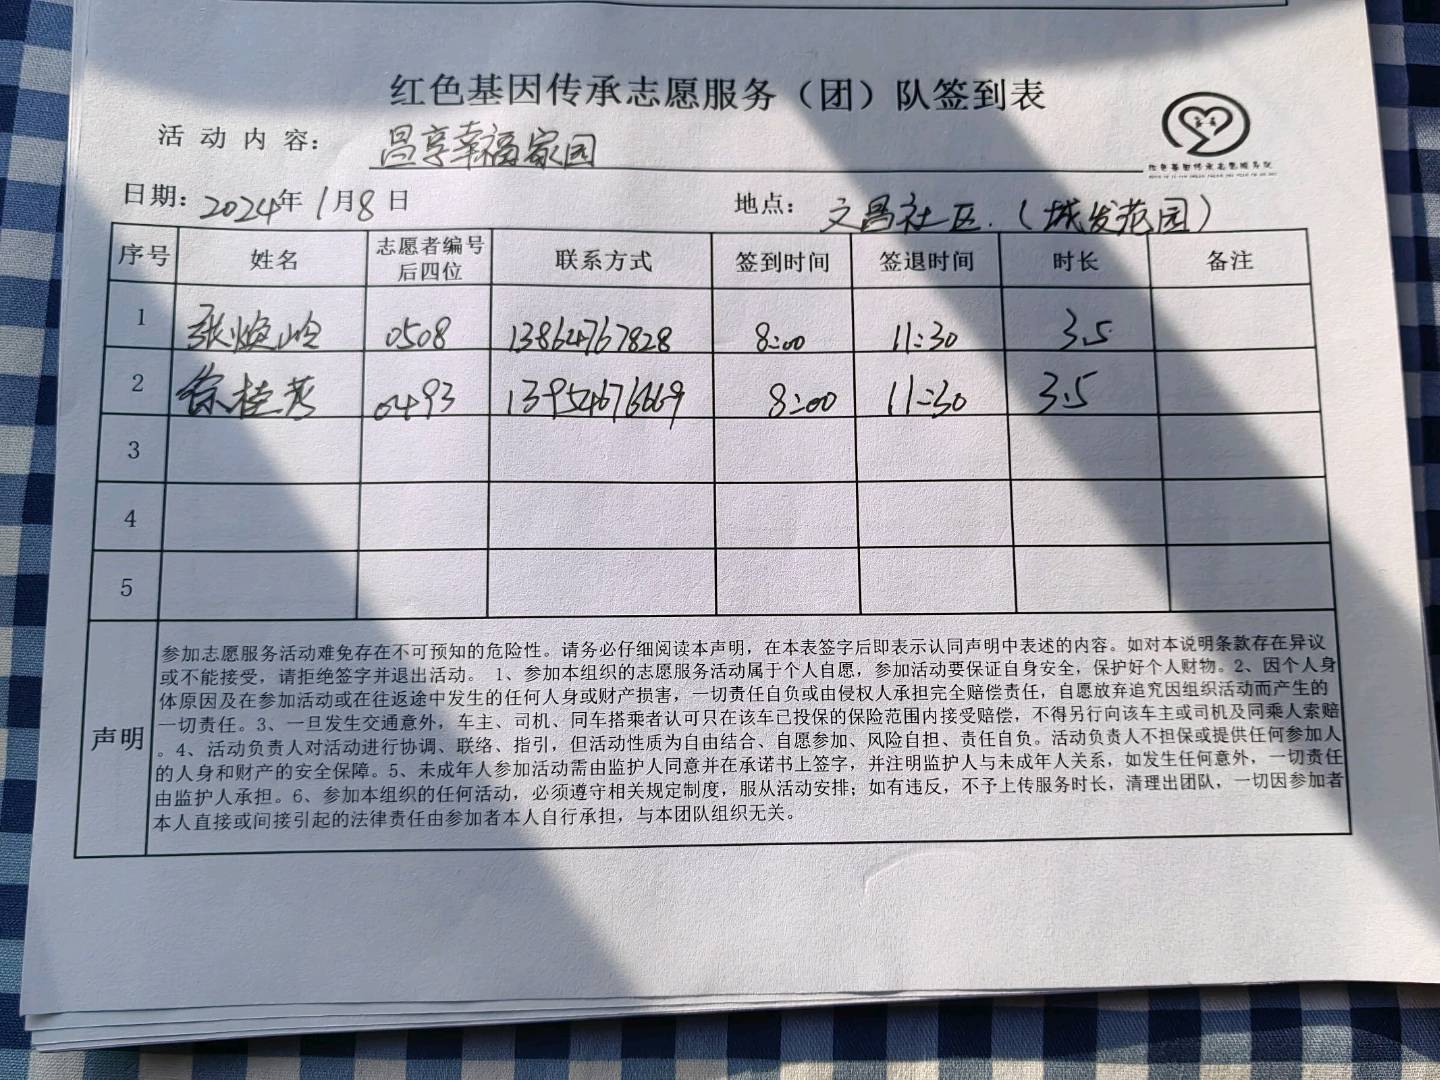 红色基因传承志愿服务（团）队签到表
活动内容： 昌享幸福家园
日期：2024年1月8日 地点：文昌社区.（城发花园）
序号 姓名 志愿者编号后四位 联系方式 签到时间 签退时间 时长 备注
1 张焕岭 0508 13864767828 8:00 11:30 3.5
2 徐桂芳 0493 13954676669 8:00 11:30 3.5
3
4
5
声明
参加志愿服务活动难免存在不可预知的危险性。请务必仔细阅读本声明，在本表签字后即表示认同声明中表述的内容。如对本说明条款存在异议
或不能接受，请拒绝签字并退出活动。 1、参加本组织的志愿服务活动属于个人自愿，参加活动要保证自身安全，保护好个人财物。2、因个人身
体原因及在参加活动或在往返途中发生的任何人身或财产损害，一切责任自负或由侵权人承担完全赔偿责任，自愿放弃追究因组织活动而产生的
一切责任。3、一旦发生交通意外，车主、司机、同车搭乘者认可只在该车已投保的保险范围内接受赔偿，不得另行向该车主或司机及同乘人索赔
。4、活动负责人对活动进行协调、联络、指引，但活动性质为自由结合、自愿参加、风险自担、责任自负。活动负责人不担保或提供任何参加人
的人身和财产的安全保障。5、未成年人参加活动需由监护人同意并在承诺书上签字，并注明监护人与未成年人关系，如发生任何意外，一切责任
由监护人承担。6、参加本组织的任何活动，必须遵守相关规定制度，服从活动安排；如有违反，不予上传服务时长，清理出团队，一切因参加者
本人直接或间接引起的法律责任由参加者本人自行承担，与本团队组织无关。